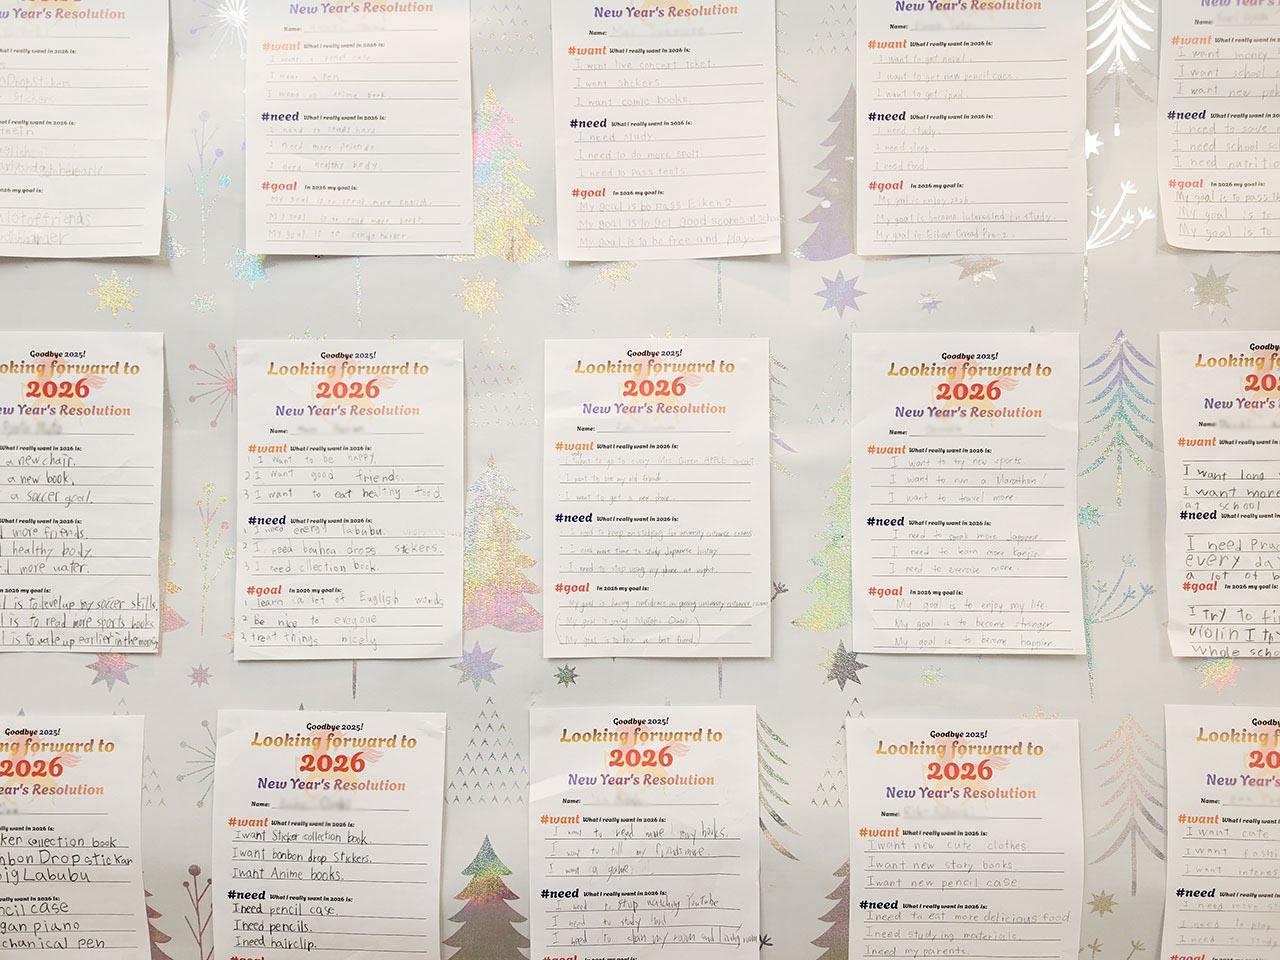 New Year's Resolution
DropStickers
Stickers
What I really want in 2026 is:
In 2026 my goal is:
lotoffriends
New Year's Resolution
Name:
#want What I really want in 2026 is:
I want a pencil case
I want a pen.
I want an anime book.
#need What I really want in 2026 is:
I need to study hard.
I need more friends
I need healthy body
#goal In 2026 my goal is:
My goal is to speak more English.
My goal is to read more books.
My goal is to
New Year's Resolution
Name:
#want What I really want in 2026 is:
I want live concert ticket.
I want stickers.
I want comic books.
#need What I really want in 2026 is:
I need study.
I need to do more spolt
I need to pass tests.
#goal In 2026 my goal is:
My goal is to pass Eiken2
My goal is to get good scores at school
My goal is to be free and play.
New Year's Resolution
Name:
#want What I really want in 2026 is:
I want to get novel.
I want to get new pencil case.
I want to get ipad.
#need What I really want in 2026 is:
I need study.
I need sleep.
I need food
#goal In 2026 my goal is:
My goal is enjoy 2026.
My goal is become interested in study.
My goal is Eiken Gread Pre-2.
Name:
#want What I really want in 2026 is:
I want money
I want school
I want new
#need What I really want in 2026 is:
I need to save
I need school
I need
#goal In 2026 my goal is:
My goal is to pass
My goal is to
My goal is to
ooking forward to
2026
New Year's Resolution
What I really want in 2026 is:
a new chair.
a new book.
a soccer goal.
What I really want in 2026 is:
more friends.
healthy body.
d more water.
In 2026 my goal is:
l is to level up my soccer skills.
l is to read more sports books
l is to wake up earlier in the morning
Goodbye 2025!
Looking forward to
2026
New Year's Resolution
Name:
#want What I really want in 2026 is:
1 I want to be happy.
2 I want good friends.
3 I want to eat healthy food.
#need What I really want in 2026 is:
1 I need energy labubu.
2 I need bonbon drops stickers.
3 I need cllection book.
#goal In 2026 my goal is:
1 learn a lot of English words
2 be nice to everyone
3 treat things nicely
Goodbye 2025!
Looking forward to
2026
New Year's Resolution
Name:
#want What I really want in 2026 is:
I want to go to every Mrs. Green APPLE concert
I want to see my old friends.
I want to get a new phone.
#need What I really want in 2026 is:
I need to keep on studying for university entrance exams.
I need more time to study Japanese history
I need to stop using my phone at night.
#goal In 2026 my goal is:
My goal is having confidence in passing university entrance exams
My goal is
My goal is to be a best friend
Goodbye 2025!
Looking forward to
2026
New Year's Resolution
Name:
#want What I really want in 2026 is:
I want to try new sports
I want to run a Marathon!
I want to travel more.
#need What I really want in 2026 is:
I need to speak more Japanese
I need to learn more Kanji.
I need to exercise more.
#goal In 2026 my goal is:
My goal is to enjoy my life
My goal is to become stronger
My goal is to become happier.
Goodbye 2025!
Looking forward to
202
New Year's Resolution
Name:
#want What I really want in 2026 is:
I want long
I want more
at school
#need What I really want in 2026 is:
I need
every da
a lot of b
#goal In 2026 my goal is:
I try to fi
violin I
whole scho
ng forward to
2026
Year's Resolution
What I really want in 2026 is:
ker collection book
nbon Drop sticker
big Labubu
What I really want in 2026 is:
ncil case
gan piano
chanical pen
Goodbye 2025!
Looking forward to
2026
New Year's Resolution
Name:
#want What I really want in 2026 is:
I want Sticker collection book.
I want bonbon drop stickers.
I want Anime books.
#need What I really want in 2026 is:
I need pencil case.
I need pencils.
I need hairclip.
#goal In 2026 my goal is:
Goodbye 2025!
Looking forward to
2026
New Year's Resolution
Name:
#want What I really want in 2026 is:
I want to read more my books.
I want to my friends more.
I want a game.
#need What I really want in 2026 is:
I need to stop watching YouTube
I need to study hard
I need to clean my room and living room
#goal In 2026 my goal is:
Goodbye 2025!
Looking forward to
2026
New Year's Resolution
Name:
#want What I really want in 2026 is:
I want new cute clothes
I want new story books.
I want new pencil case
#need What I really want in 2026 is:
I need to eat more delicious food
I need studying materials.
I need my parents.
#goal In 2026 my goal is:
Goodbye 2025!
Looking forward
20
New Year's Resolution
Name:
#want What I really want in 2026 is:
I want cute
I want
I want
#need What I really want in 2026 is:
I need more
I need to play
I need to study
#goal In 2026 my goal is: